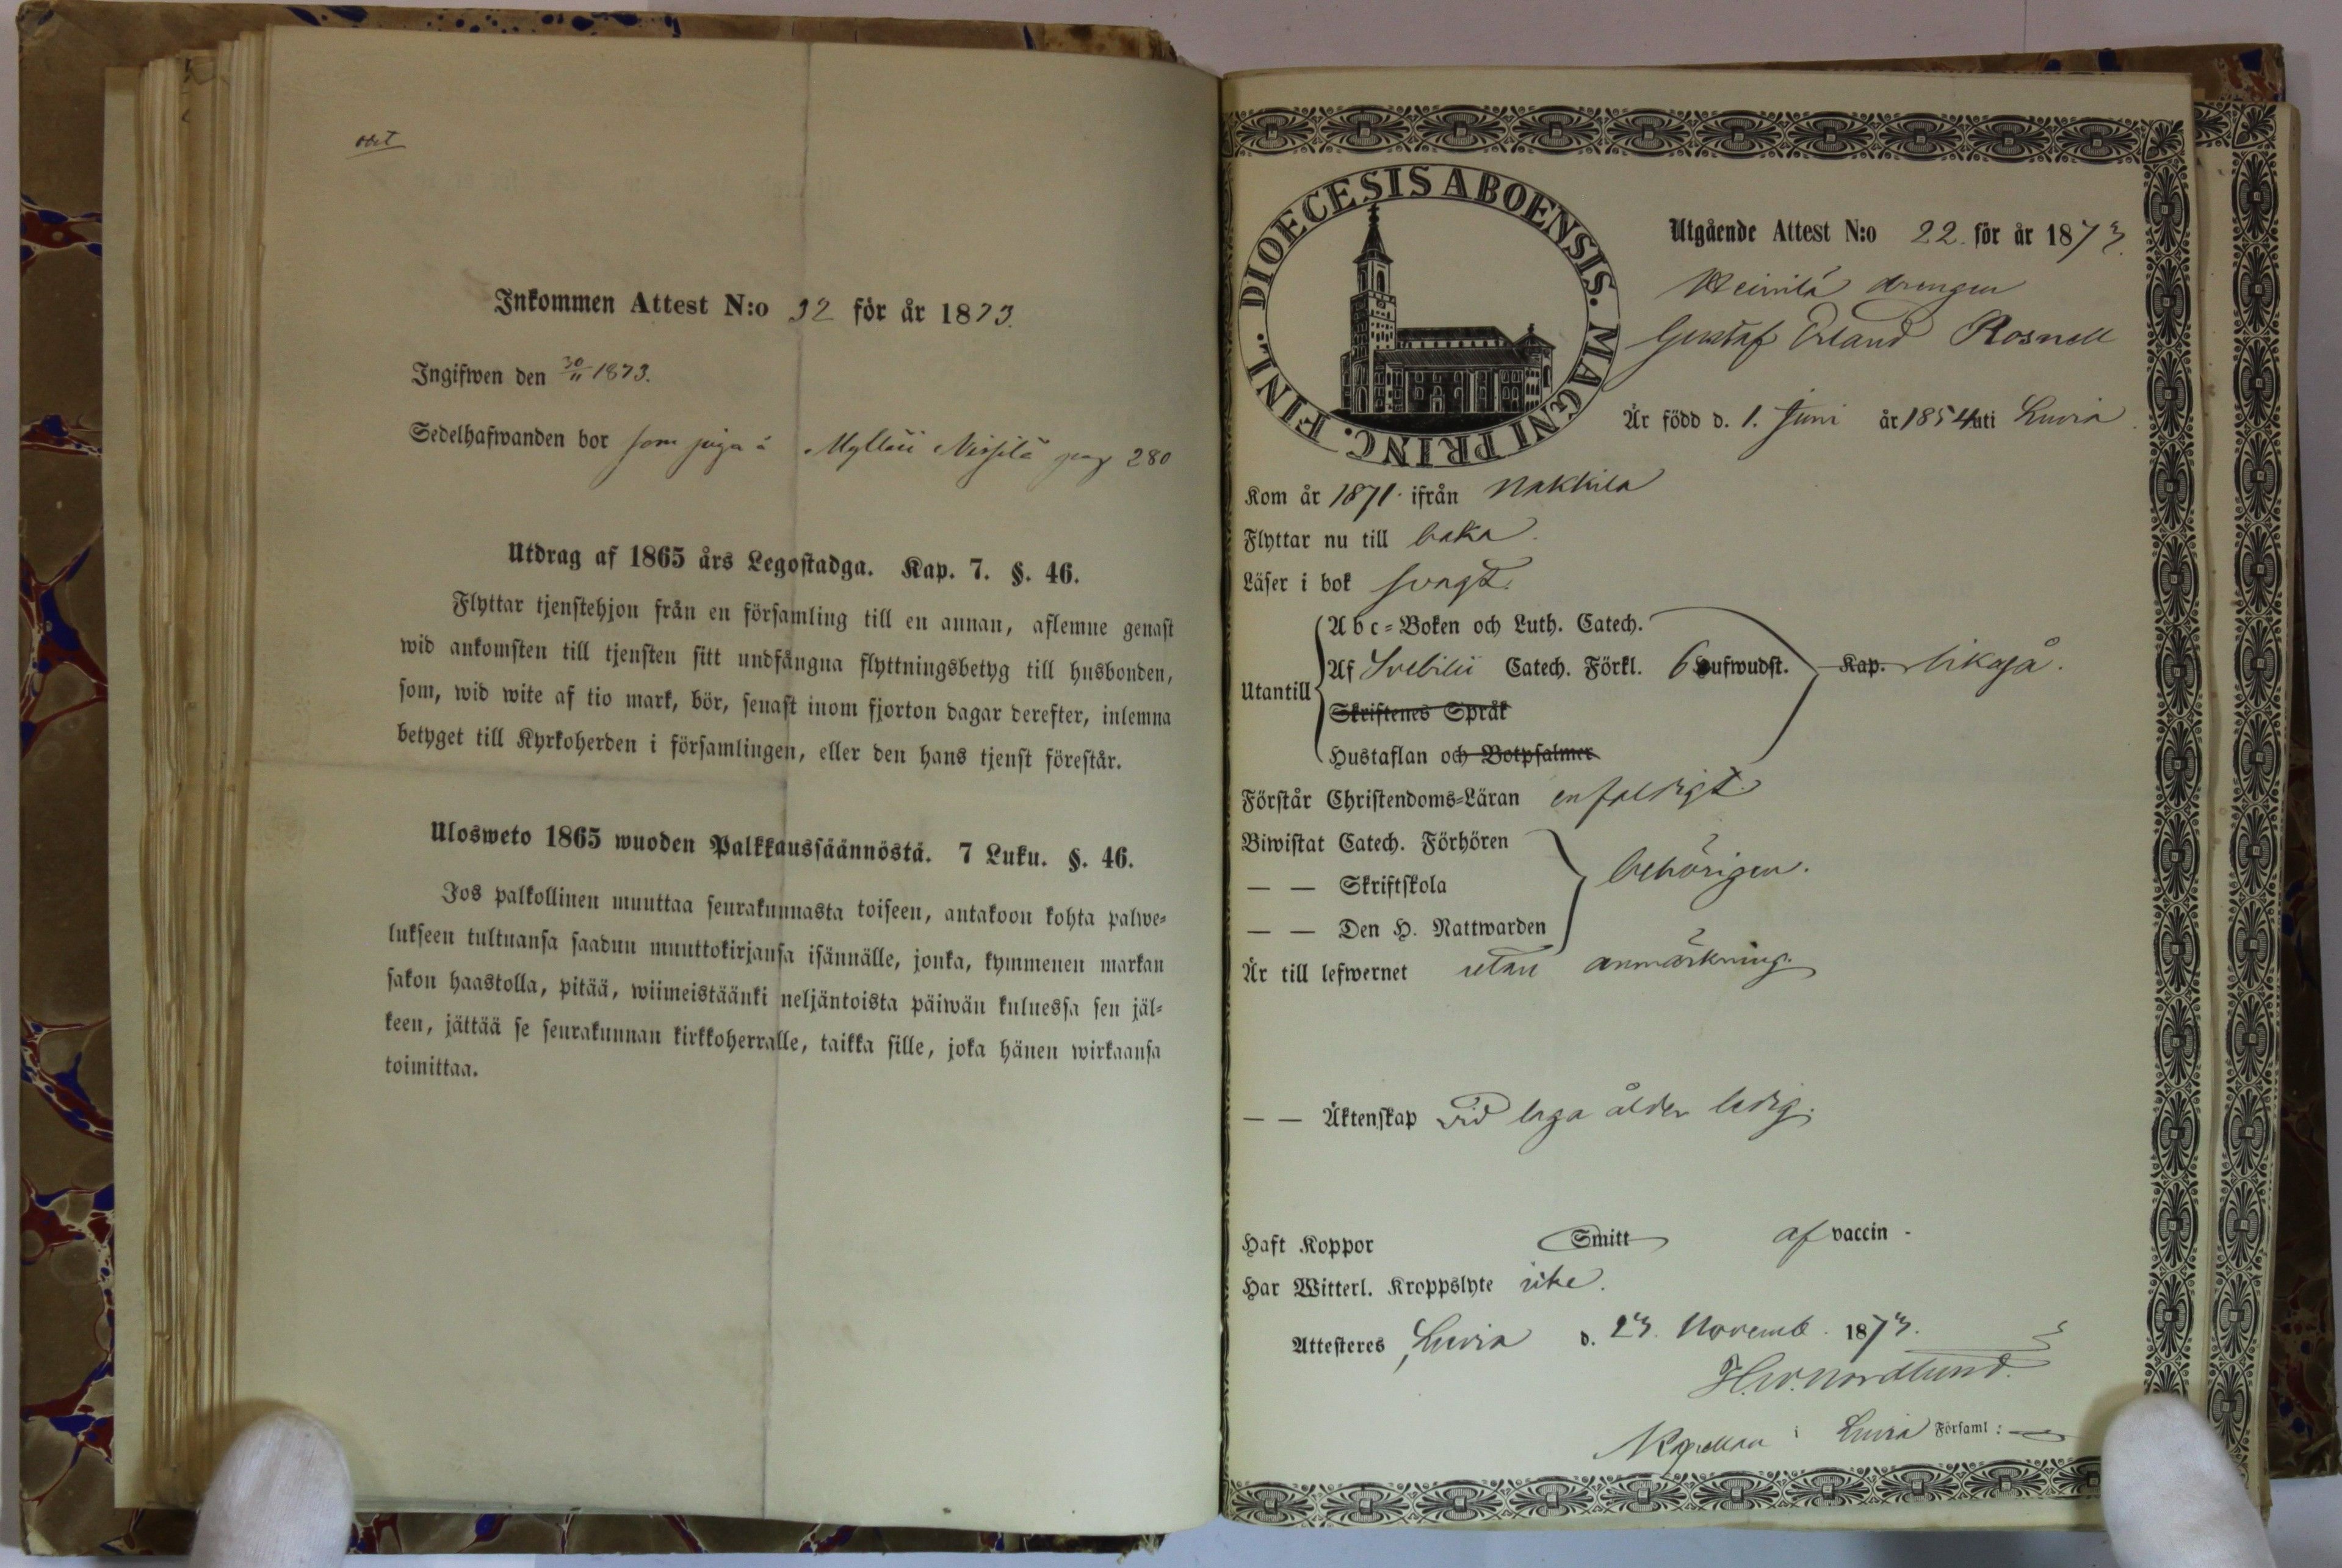 Inkommen Attest N:o 32 för år 1873.
Ingifwen den 30/11 1873.
Sedelhafwanden bor som piga å Nissilä pag 280
Utdrag af 1865 års Legostadga. Kap. 7. §. 46.
Flyttar tjenstehjon från en församling till en annan, aflemne genast
wid ankomsten till tjensten sitt undfångna flyttningsbetyg till husbonden,
som, wid wite af tio mark, bör, senast inom fjorton dagar derefter, inlemna
betyget till Kyrkoherden i församlingen, eller den hans tjenst förestår.
Ulosweto 1865 wuoden Palkkaussäännöstä. 7 Luku. §. 46.
Jos palkollinen muuttaa seurakunnasta toiseen, antakoon kohta palwe-
lukseen tultuansa saadun muuttokirjansa isännälle, jonka, kymmenen markan
sakon haastolla, pitää, wiimeistäänki neljäntoista päiwän kuluessa sen jäl-
keen, jättää se seurakunnan kirkkoherralle, taikka sille, joka hänen wirkaansa
toimittaa.
DIOECESIS ABOENSIS. MAGNI PRINC. FINL.
Utgående Attest N:o 22. för år 1873.
Heinilä drengen
Gustaf Erland Rosnell
Är född d. 1. Juni år 1854 uti Luvia.
Kom år 1871. ifrån Nakkila
Flyttar nu till baka.
Läser i bok svagt.
Utantill
Abc-Boken och Luth. Catech.
Af Svebilii Catech. Förkl. 6 Hufwudst. Kap. likaså.
Skriftenes Språk
Hustaflan och Botpsalmer
Förstår Christendoms-Läran enfaldigt.
Biwistat Catech. Förhören
— — Skriftskola behörigen.
— — Den H. Nattwarden
Är till lefwernet utan anmärkning.
— — Äktenskap Vid laga ålder ledig.
Haft Koppor Smitt af vaccin -
Har Witterl. Kroppslyte icke.
Attesteres, Luvia d. 23. Novemb. 1873.
H. W. Nordlund.
Kapellan i Luvia Församl: